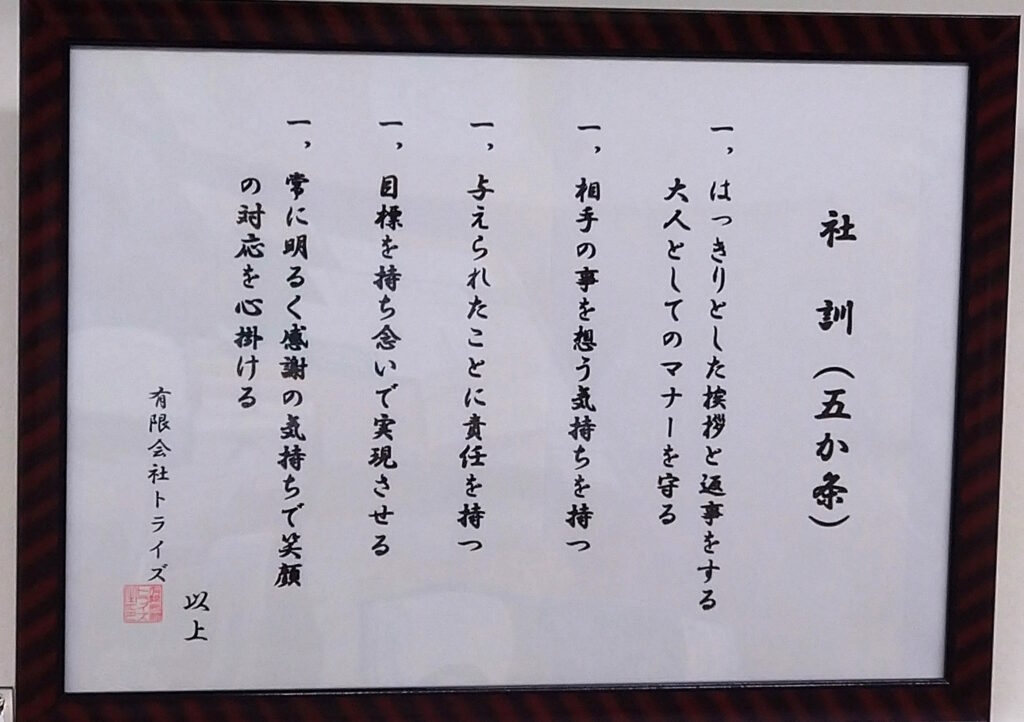 社訓（五か条）
一，はっきりとした挨拶と返事をする
大人としてのマナーを守る
一，相手の事を想う気持ちを持つ
一，与えられたことに責任を持つ
一，目標を持ち念いで実現させる
一，常に明るく感謝の気持ちで笑顔
の対応を心掛ける
以上
有限会社トライズ